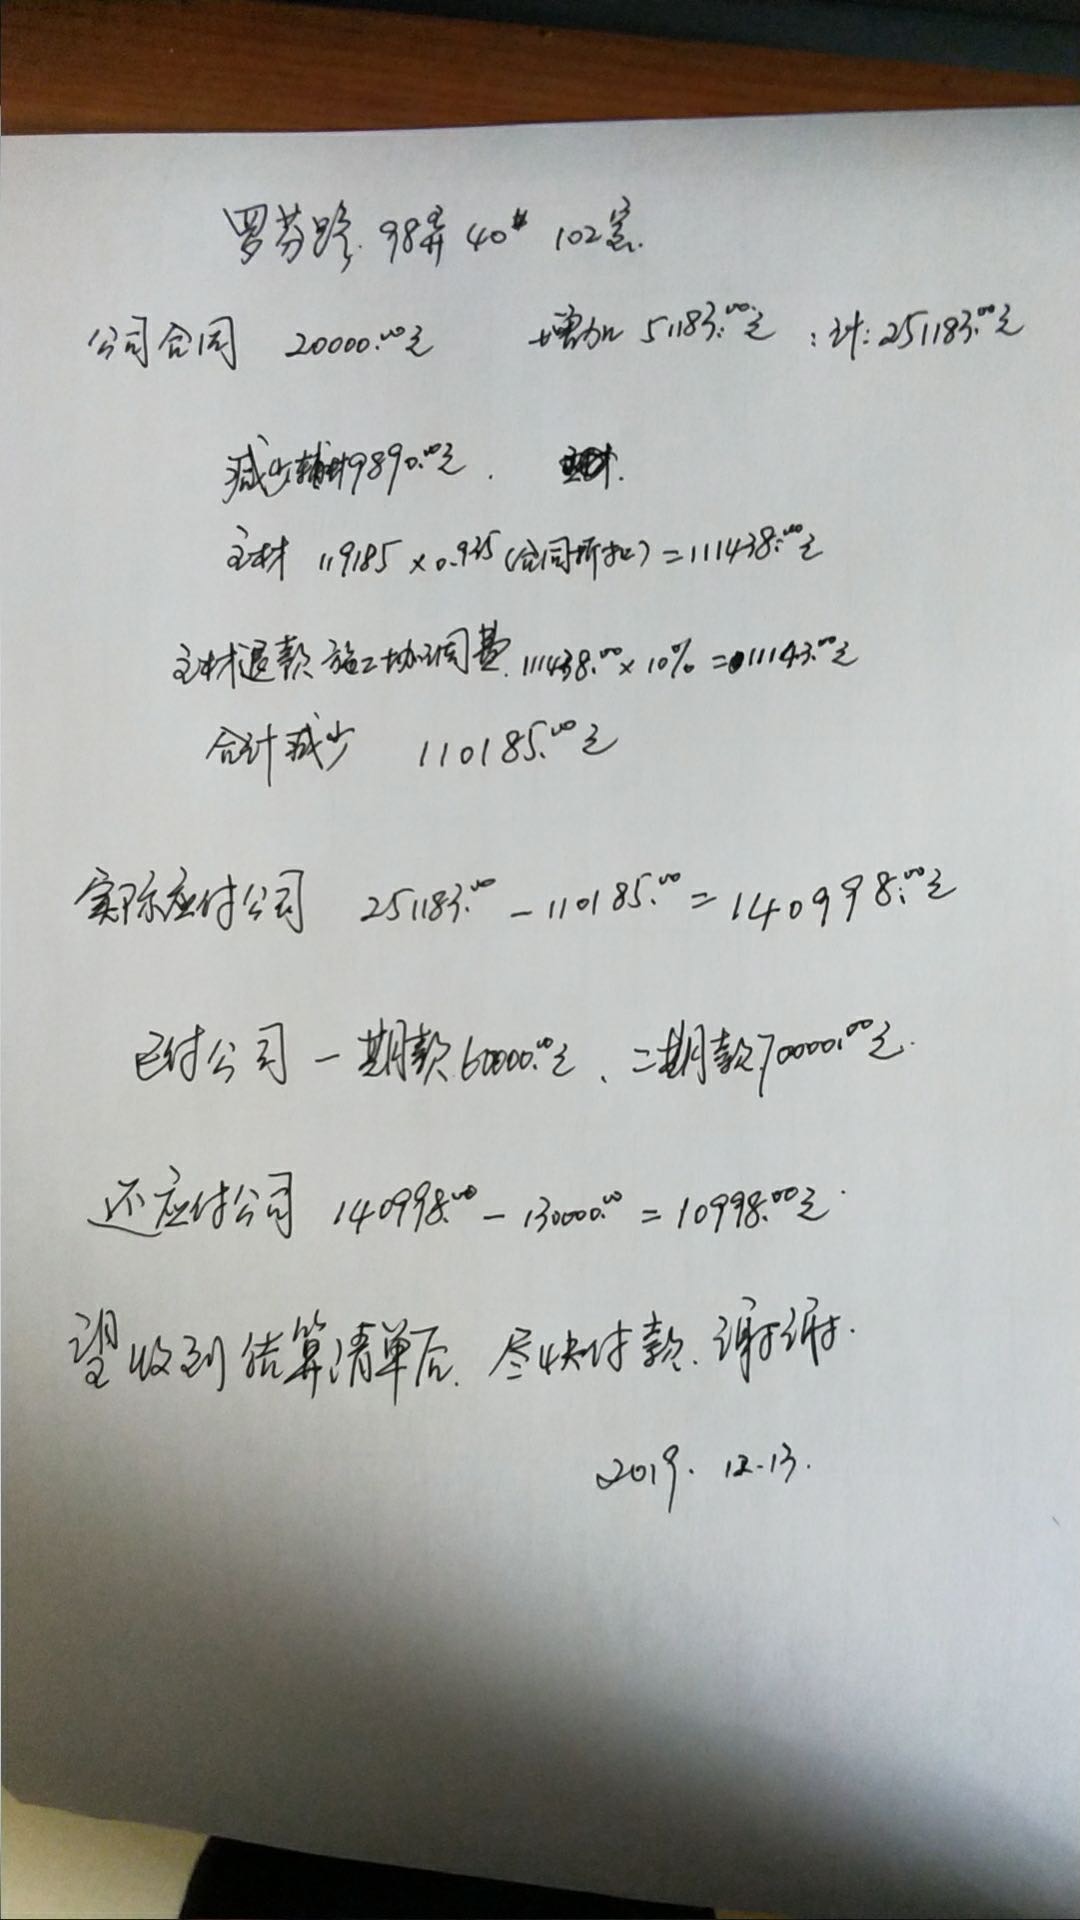 罗芬路.98弄40# 102室.
公司合同 20000.00元 增加 51183.00元 :计:251183.00元
减少辅材9890.00元.
主材 119185×0.935(合同折扣)=111438.00元
主材退款施工协调费.111438.00×10%=11143.00元
合计减少 110185.00元
实际应付公司 251183.00-110185.00=140998.00元
已付公司一期款60000.00元、二期款70000.00元.
还应付公司 140998.00-130000.00=10998.00元.
望收到结算清单后.尽快付款.谢谢.
2019.12.13.